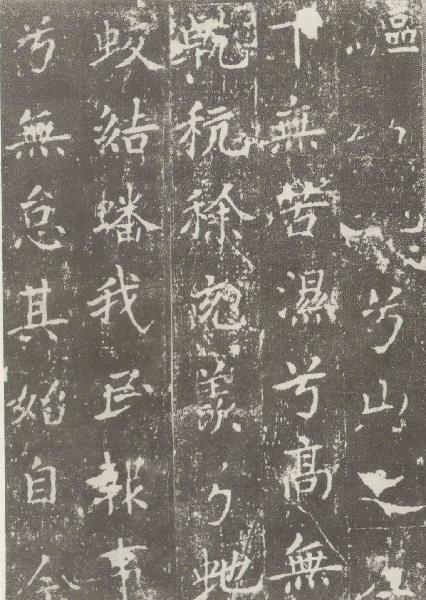 兮山之左
下無苦濕兮高無
乾秔稌充羨兮蛇
蛟結蟠我民報事
兮無怠其始自今